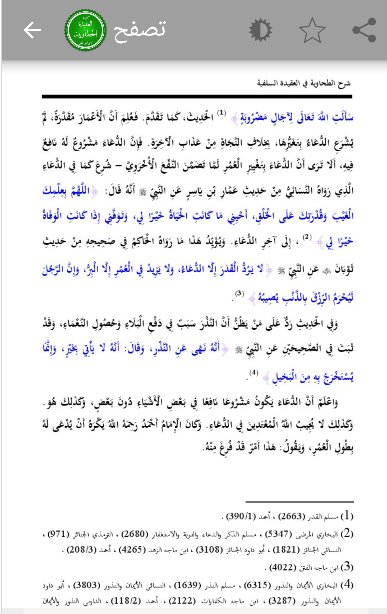 تصفح
شرح الطحاوية في العقيدة السلفية
سَأَلْتِ اللهَ تَعَالَى لِآجَالٍ مَضْرُوبَةٍ ﴾ (1) الْحَدِيثَ، كَمَا تَقَدَّمَ. فَعُلِمَ أَنَّ الْأَعْمَارَ مُقَدَّرَةٌ، لَمْ
يُشْرَعِ الدُّعَاءُ بِتَغَيُّرِهَا، بِخِلَافِ النَّجَاةِ مِنْ عَذَابِ الْآخِرَةِ. فَإِنَّ الدُّعَاءَ مَشْرُوعٌ لَهُ نَافِعٌ
فِيهِ، أَلَا تَرَى أَنَّ الدُّعَاءَ بِتَغْيِيرِ الْعُمُرِ لَمَّا تَضَمَّنَ النَّفْعَ الْأُخْرَوِيَّ - شُرِعَ كَمَا فِي الدُّعَاءِ
الَّذِي رَوَاهُ النَّسَائِيُّ مِنْ حَدِيثِ عَمَّارِ بْنِ يَاسِرٍ عَنِ النَّبِيِّ ﷺ أَنَّهُ قَالَ: ﴿ اللَّهُمَّ بِعِلْمِكَ
الْغَيْبَ وَقُدْرَتِكَ عَلَى الْخَلْقِ، أَحْيِنِي مَا كَانَتِ الْحَيَاةُ خَيْرًا لِي، وَتَوَفَّنِي إِذَا كَانَتِ الْوَفَاةُ
خَيْرًا لِي ﴾ (2) ، إِلَى آخِرِ الدُّعَاءِ. وَيُؤَيِّدُ هَذَا مَا رَوَاهُ الْحَاكِمُ فِي صَحِيحِهِ مِنْ حَدِيثِ
ثَوْبَانَ عَنِ النَّبِيِّ ﷺ ﴿ لَا يَرُدُّ الْقَدَرَ إِلَّا الدُّعَاءُ، وَلَا يَزِيدُ فِي الْعُمُرِ إِلَّا الْبِرُّ، وَإِنَّ الرَّجُلَ
لَيُحْرَمُ الرِّزْقَ بِالذَّنْبِ يُصِيبُهُ ﴾ (3).
وَفِي الْحَدِيثِ رَدٌّ عَلَى مَنْ يَظُنُّ أَنَّ النَّذْرَ سَبَبٌ فِي دَفْعِ الْبَلَاءِ وَحُصُولِ النَّعْمَاءِ، وَقَدْ
ثَبَتَ فِي الصَّحِيحَيْنِ عَنِ النَّبِيِّ ﷺ ﴿ أَنَّهُ نَهَى عَنِ النَّذْرِ، وَقَالَ: أَنَّهُ لَا يَأْتِي بِخَيْرٍ، وَإِنَّمَا
يُسْتَخْرَجُ بِهِ مِنَ الْبَخِيلِ ﴾ (4).
وَاعْلَمْ أَنَّ الدُّعَاءَ يَكُونُ مَشْرُوعًا نَافِعًا فِي بَعْضِ الْأَشْيَاءِ دُونَ بَعْضٍ، وَكَذَلِكَ هُوَ.
وَكَذَلِكَ لَا يُجِيبُ اللهُ الْمُعْتَدِينَ فِي الدُّعَاءِ. وَكَانَ الْإِمَامُ أَحْمَدُ رَحِمَهُ اللهُ يَكْرَهُ أَنْ يُدْعَى لَهُ
بِطُولِ الْعُمُرِ، وَيَقُولُ: هَذَا أَمْرٌ قَدْ فُرِغَ مِنْهُ.
(1) مسلم القدر (2663) ، أحمد (390/1).
(2) البخاري المرضى (5347) ، مسلم الذكر والدعاء والتوبة والاستغفار (2680) ، الترمذي الجنائز (971) ،
النسائي الجنائز (1821) ، أبو داود الجنائز (3108) ، ابن ماجه الزهد (4265) ، أحمد (208/3).
(3) ابن ماجه الفتن (4022).
(4) البخاري الأيمان والنذور (6315) ، مسلم النذر (1639) ، النسائي الأيمان والنذور (3803) ، أبو داود
الأيمان والنذور (3287) ، ابن ماجه الكفارات (2122) ، أحمد (118/2) ، الدارمي النذور والأيمان